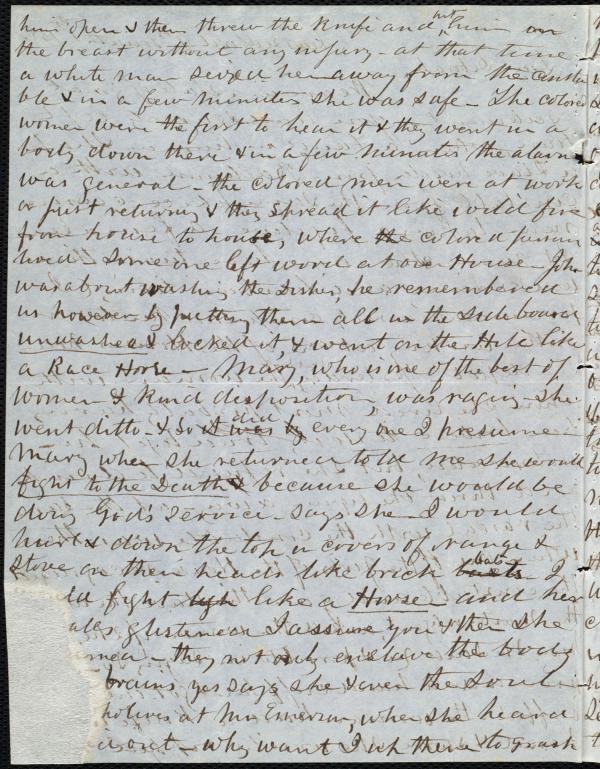 him open & then threw the knife and hit him on
the breast without any injury - at that time
a white man seized her away from the consta
ble & in a few minutes she was safe - The colored
women were the first to hear it & they went in a
body down there & in a few minutes the alarm
was general - the colored men were at work
or just returning & they spread it like wild fire
from house to house, where the colored person
lived - Some one left word at our House - John
was about washing the dishes, he remembered
us however by putting them all in the sideboard
unwashed & locked it, & went on the Hill like
a Race Horse - Mary, who is one of the best of
women & kind disposition, was raging - she
went ditto - & so it was by did every one I presume -
Mary when she returned told me she would
fight to the Death & because she would be
doing God's service - says she - I would
hurl & down the top in covers of range &
stove on their heads like brick bats I
fight like a Horse - and her
glistened I assure you & then she
- they not only enslave the body
brains, yes says she & even the Soul -
lives at Mr Emerson, when she heard
out - why want I up there to gnash